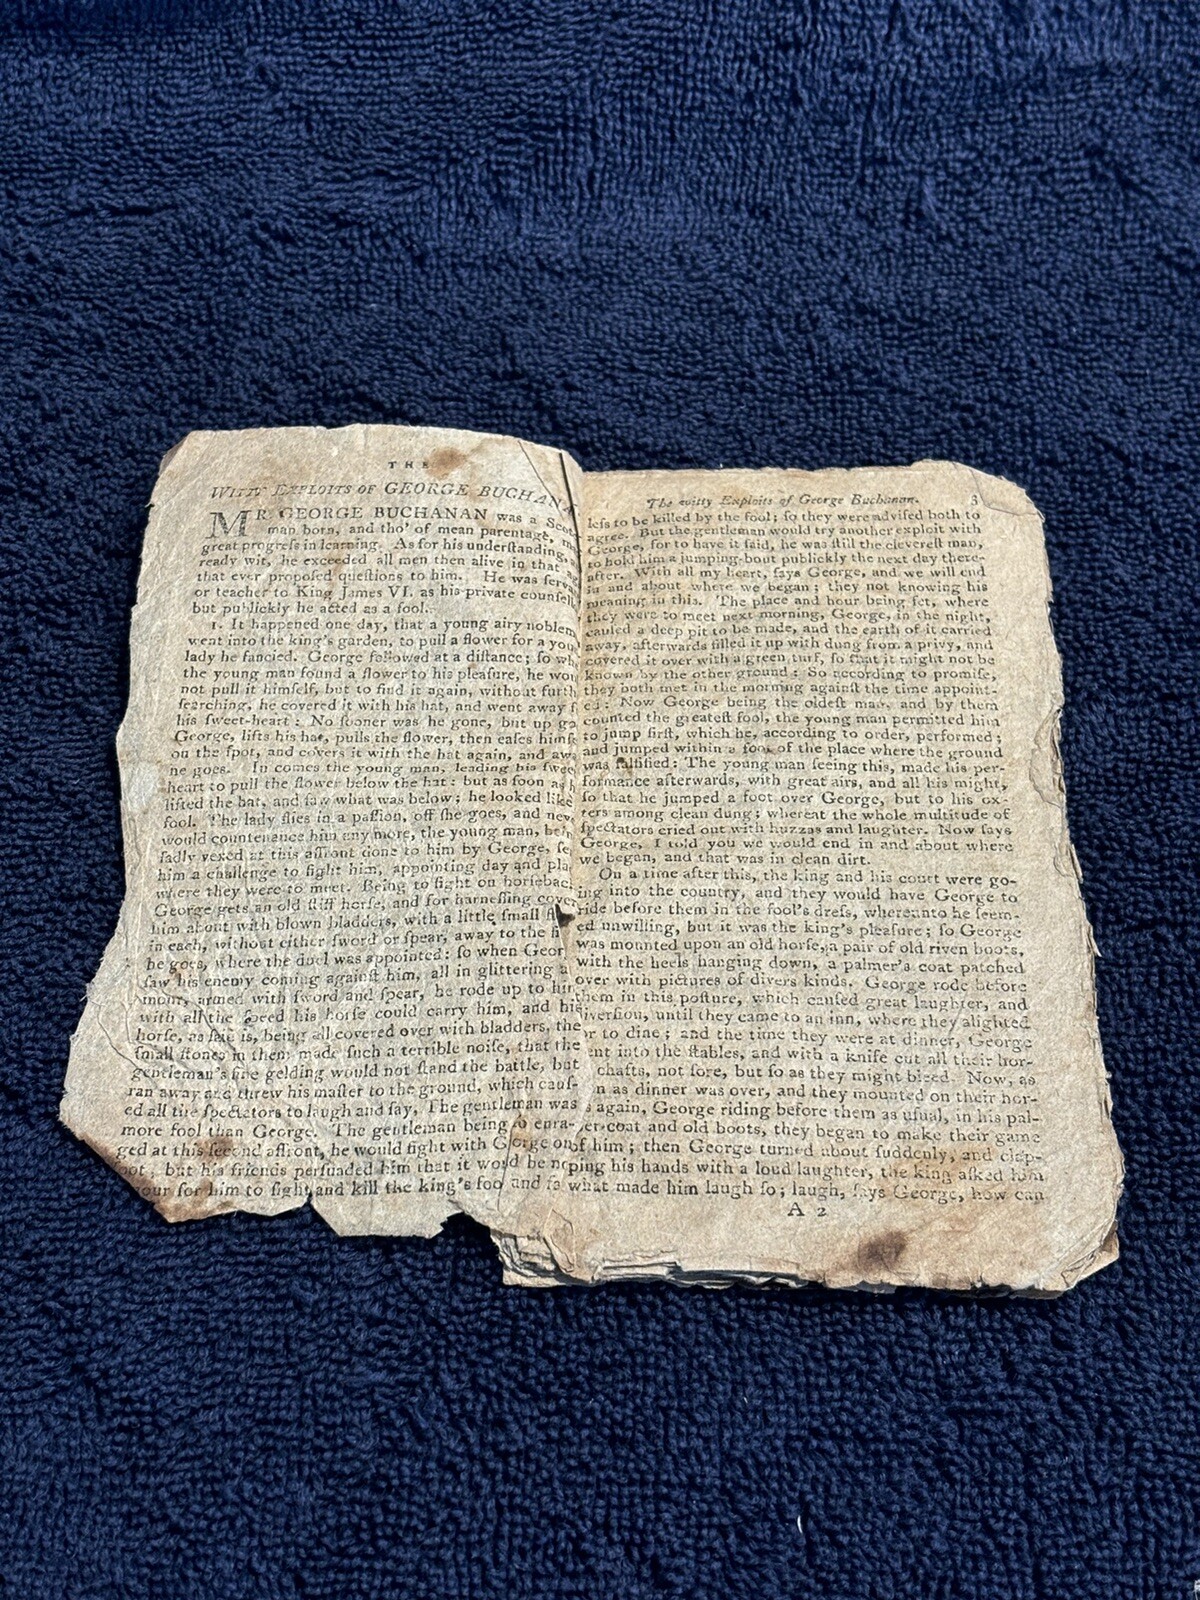 THE
WITTY EXPLOITS OF GEORGE BUCHANA
MR GEORGE BUCHANAN was a Scot
man born, and tho' of mean parentage,
great progreſs in learning. As for his underſtanding,
ready wit, he exceeded all men then alive in that
that ever propoſed queſtions to him. He was ſerva
or teacher to King James VI. as his private counſell
but publickly he acted as a fool.
1. It happened one day, that a young airy noblem
went into the king's garden, to pull a flower for a you
lady he fancied. George followed at a diſtance; ſo wh
the young man found a flower to his pleaſure, he wou
not pull it himſelf, but to find it again, without furth
ſearching, he covered it with his hat, and went away f
his ſweet-heart: No ſooner was he gone, but up go
George, lifts his hat, pulls the flower, then eaſes himſe
on the ſpot, and covers it with the hat again, and awa
he goes. In comes the young man, leading his ſwee
heart to pull the flower below the hat: but as ſoon as h
lifted the hat, and ſaw what was below; he looked like
fool. The lady flies in a paſſion, off ſhe goes, and neve
would countenance him any more, the young man, bein
ſadly vexed at this affront done to him by George, ſe
him a challenge to fight him, appointing day and plac
where they were to meet. Being to fight on horſeback
George gets an old ſtiff horſe, and for harneſſing cover
him about with blown bladders, with a little ſmall ſt
in each, without either ſword or ſpear, away to the fi
he goes, where the duel was appointed: ſo when Geor
ſaw his enemy coming againſt him, all in glittering a
mour, armed with ſword and ſpear, he rode up to him
with all the ſpeed his horſe could carry him, and his
horſe, as ſaid is, being all covered over with bladders, the
ſmall ſtones in them made ſuch a terrible noiſe, that the
gentleman's fine gelding would not ſtand the battle, but
ran away and threw his maſter to the ground, which cauſ-
ed all the ſpectators to laugh and ſay, The gentleman was
more fool than George. The gentleman being ſo enra-
ged at this ſecond affront, he would fight with George on
oot; but his friends perſuaded him that it would be no
our for him to fight and kill the king's fool and ſa
The witty Exploits of George Buchanan. 3
leſs to be killed by the fool; ſo they were adviſed both to
agree. But the gentleman would try another exploit with
George, for to have it ſaid, he was ſtill the clevereſt man,
to hold him a jumping-bout publickly the next day there-
after. With all my heart, ſays George, and we will end
in and about where we began; they not knowing his
meaning in this. The place and hour being ſet, where
they were to meet next morning, George, in the night,
cauſed a deep pit to be made, and the earth of it carried
away, afterwards filled it up with dung from a privy, and
covered it over with a green turf, ſo that it might not be
known by the other ground: So according to promiſe,
they both met in the morning againſt the time appoint-
ed: Now George being the oldeſt man, and by them
counted the greateſt fool, the young man permitted him
to jump firſt, which he, according to order, performed;
and jumped within a foot of the place where the ground
was falſified: The young man ſeeing this, made his per-
formance afterwards, with great airs, and all his might,
ſo that he jumped a foot over George, but to his ox-
ters among clean dung; whereat the whole multitude of
ſpectators cried out with huzzas and laughter. Now ſays
George, I told you we would end in and about where
we began, and that was in clean dirt.
On a time after this, the king and his court were go-
ing into the country, and they would have George to
ride before them in the fool's dreſs, whereunto he ſeem-
ed unwilling, but it was the king's pleaſure; ſo George
was mounted upon an old horſe, a pair of old riven boots,
with the heels hanging down, a palmer's coat patched
over with pictures of divers kinds. George rode before
them in this poſture, which cauſed great laughter, and
iverſion, until they came to an inn, where they alighted
or to dine; and the time they were at dinner, George
ent into the ſtables, and with a knife cut all their hor-
chafts, not ſore, but ſo as they might bleed. Now, as
n as dinner was over, and they mounted on their hor-
again, George riding before them as uſual, in his pal-
er-coat and old boots, they began to make their game
of him; then George turned about ſuddenly, and clap-
ping his hands with a loud laughter, the king aſked him
what made him laugh ſo; laugh, ſays George, how can
A 2